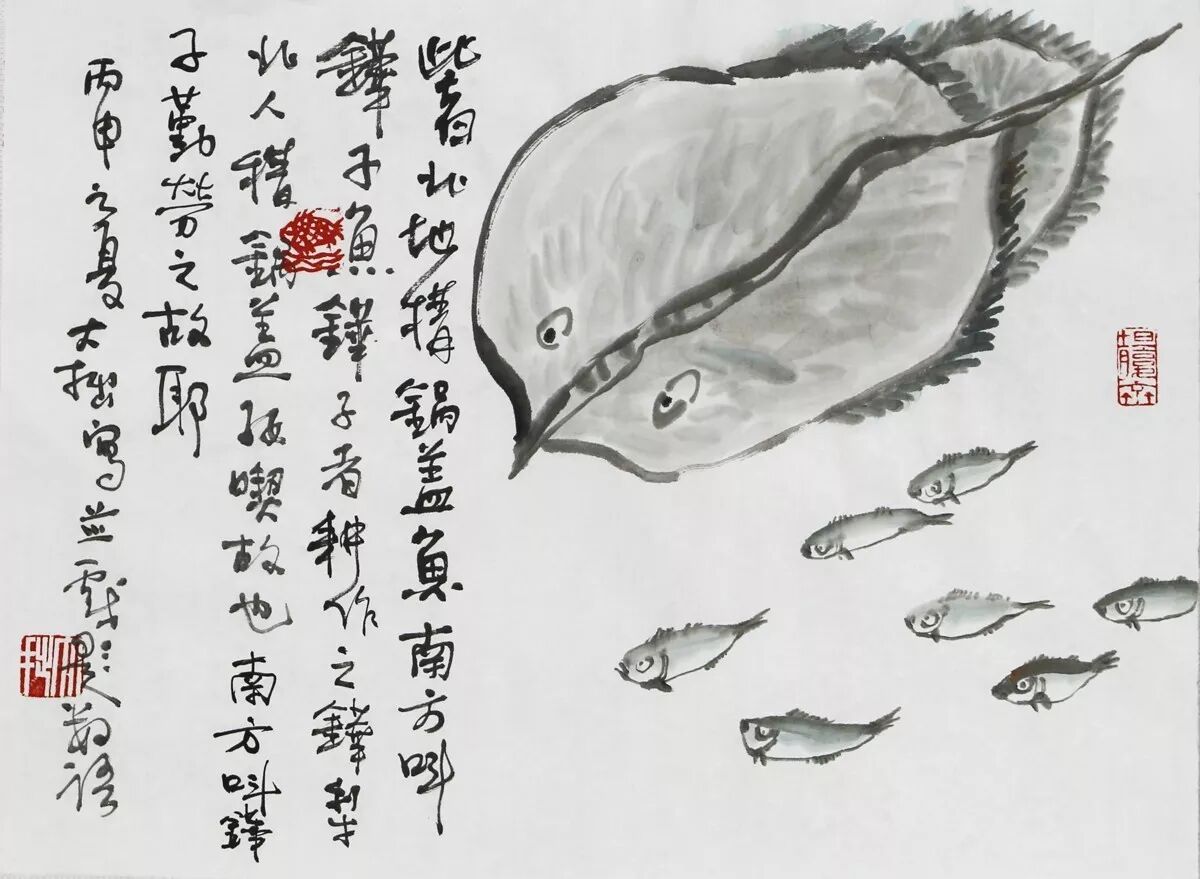 此者北地稱鍋盖魚南方叫
鏵子魚鏵子者耕作之鏵犁
北人稱鍋盖好喫故也南方叫鏵
子勤勞之故耶
丙申之夏大拙寫並戲題數語